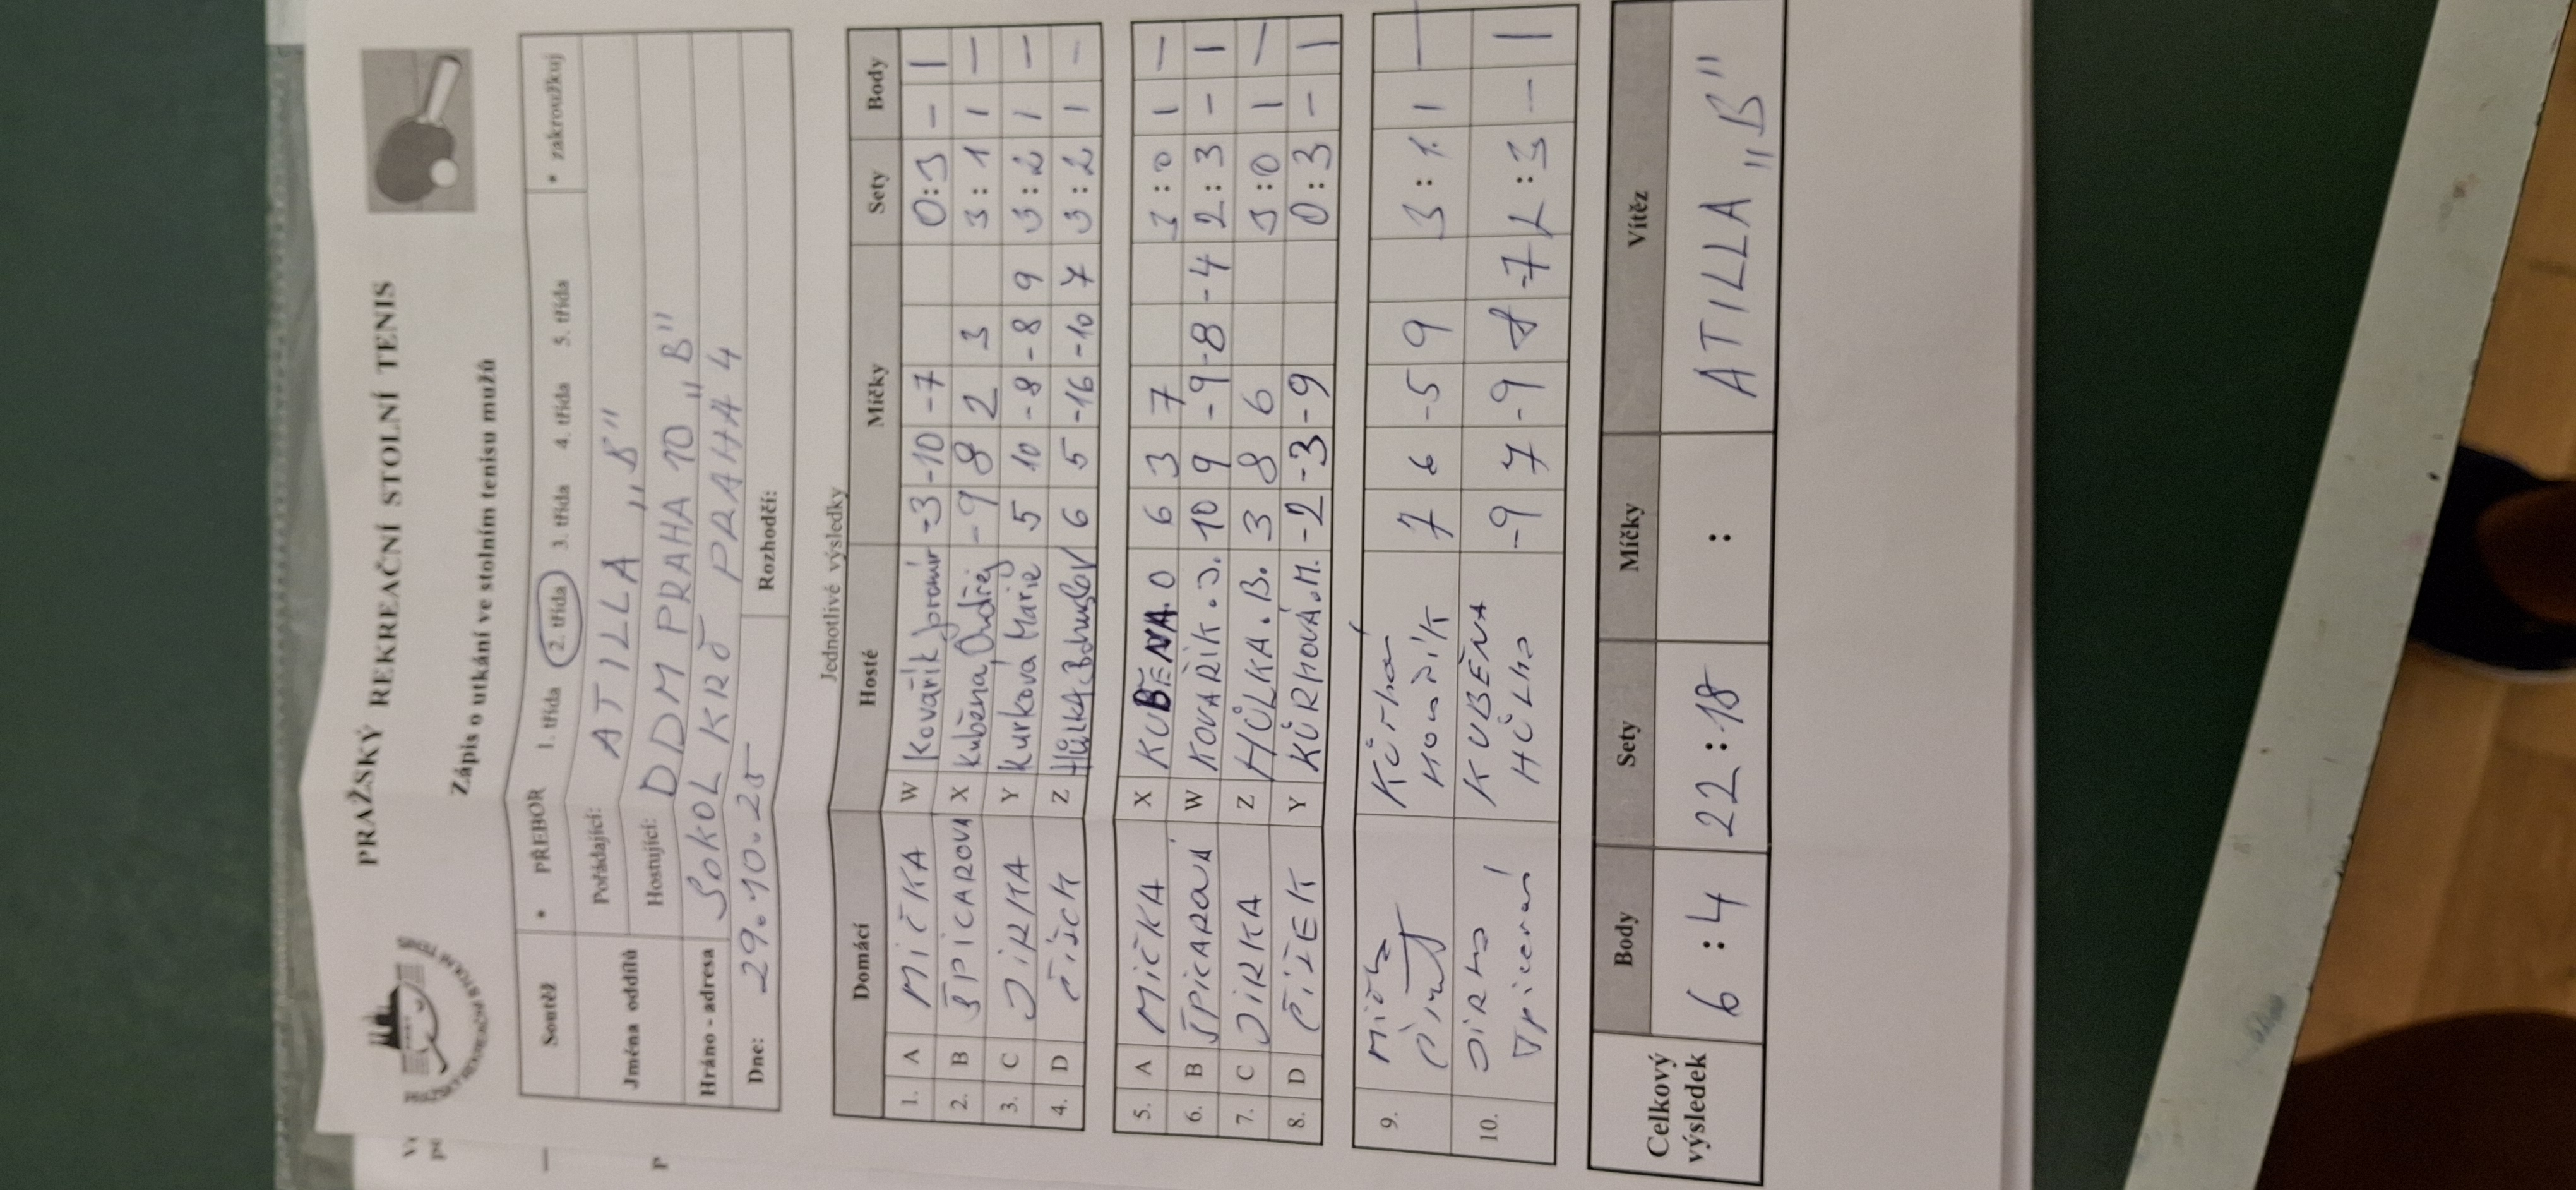 PRAŽSKÝ REKREAČNÍ STOLNÍ TENIS
Zápis o utkání ve stolním tenisu mužů
Soutěž * PŘEBOR 1. třída 2. třída 3. třída 4. třída 5. třída * zakroužkuj
Jména oddílů Pořádající: ATILLA „B"
Hostující: DDM PRAHA 10 „B"
Hráno - adresa SOKOL KRČ PRAHA 4
Dne: 29.10.25 Rozhodčí:
Jednotlivé výsledky
Domácí Hosté Míčky Sety Body
1. A MIČKA W Kovařík Jaromír -3 -10 -7 0:3 – 1
2. B ŠPICAROVÁ X Kuběna Ondřej -9 8 2 3 3:1 1 –
3. C JIRKA Y Kurková Marie 5 10 -8 -8 9 3:2 1 –
4. D ČÍŽEK Z Hůlka Bohuslav 6 5 -16 -10 7 3:2 1 –
5. A MIČKA X KUBĚNA.O 6 3 7 3:0 1 –
6. B ŠPICAROVÁ W KOVAŘÍK.J. 10 9 -9 -8 -4 2:3 – 1
7. C JIRKA Z HŮLKA.B. 3 8 6 3:0 1 –
8. D ČÍŽEK Y KŮRKOVÁ.M. -2 -3 -9 0:3 – 1
9. 7 6 -5 9 3:1 1 –
10. JIRKA KUBĚNA -9 7 -9 8 -7 2:3 – 1
HŮLKA
Celkový výsledek Body Sety Míčky Vítěz
6:4 22:18 : ATILLA „B"